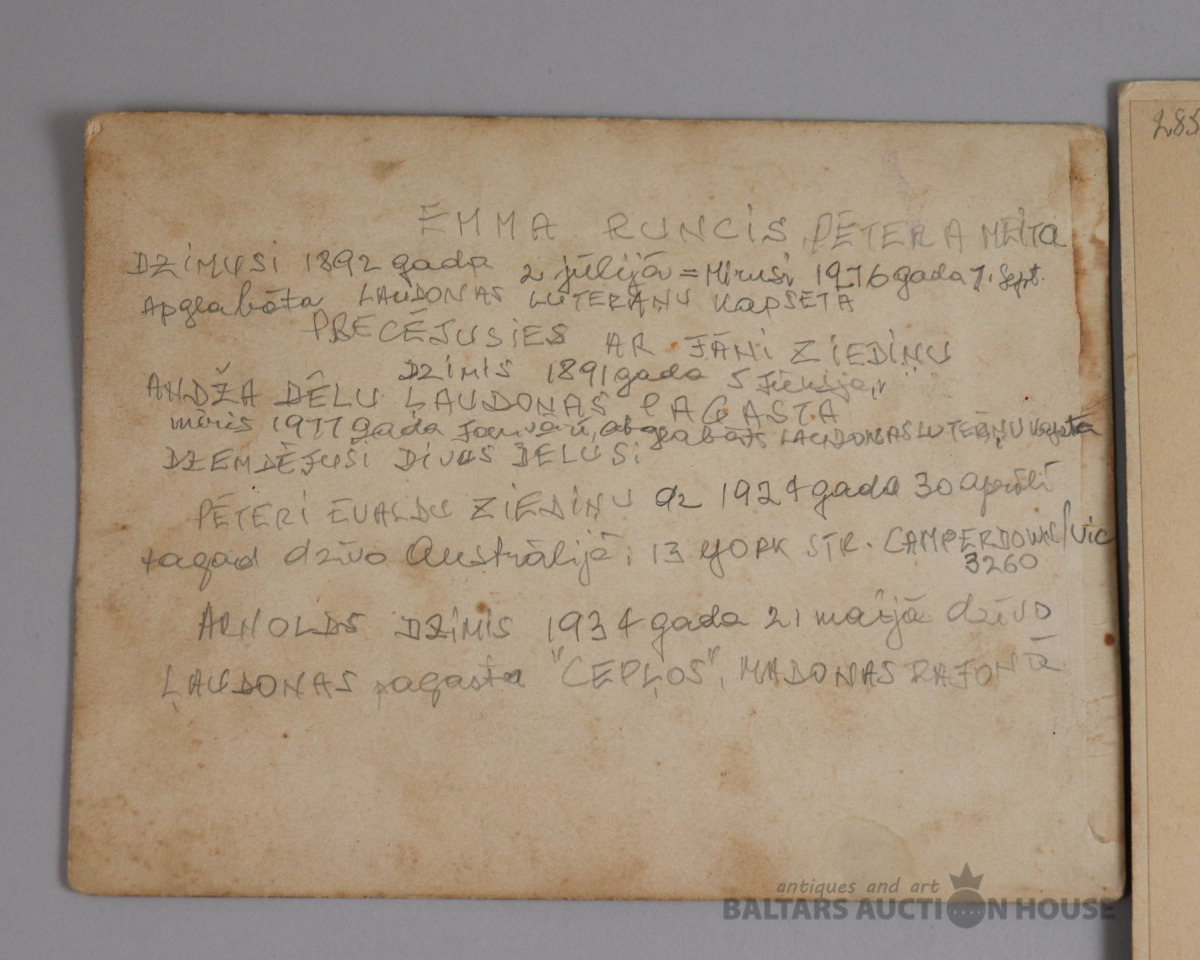 EMMA RUNCIS PĒTERA MEITA
DZIMUSI 1892 gada 2 jūlijā = Mirusi 1976 gada 7. Sept.
Apglabāta ĻAUDONAS LUTERĀŅU KAPSĒTĀ
PRECĒJUSIES AR JĀNI ZIEDIŅU
DZIMIS 1891 gada 5
ANDŽA DĒLU ĻAUDONAS PAGASTĀ
miris 1977 gada Janvārī, apglabāts ĻAUDONAS LUTERĀŅU kapsētā
DZEMDĒJUSI DIVUS DĒLUS:
PĒTERI ĒVALDU ZIEDIŅU dz 1924 gada 30 aprīlī
tagad dzīvo Austrālijā: 13 YORK STR. CAMPERDOWN/Vic
3260
ARNOLDS DZIMIS 1934 gada 21 maijā dzīvo
ĻAUDONAS pagasta "CEPĻOS", MADONAS RAJONĀ
283
antiques and art
BALTARS AUCTION HOUSE